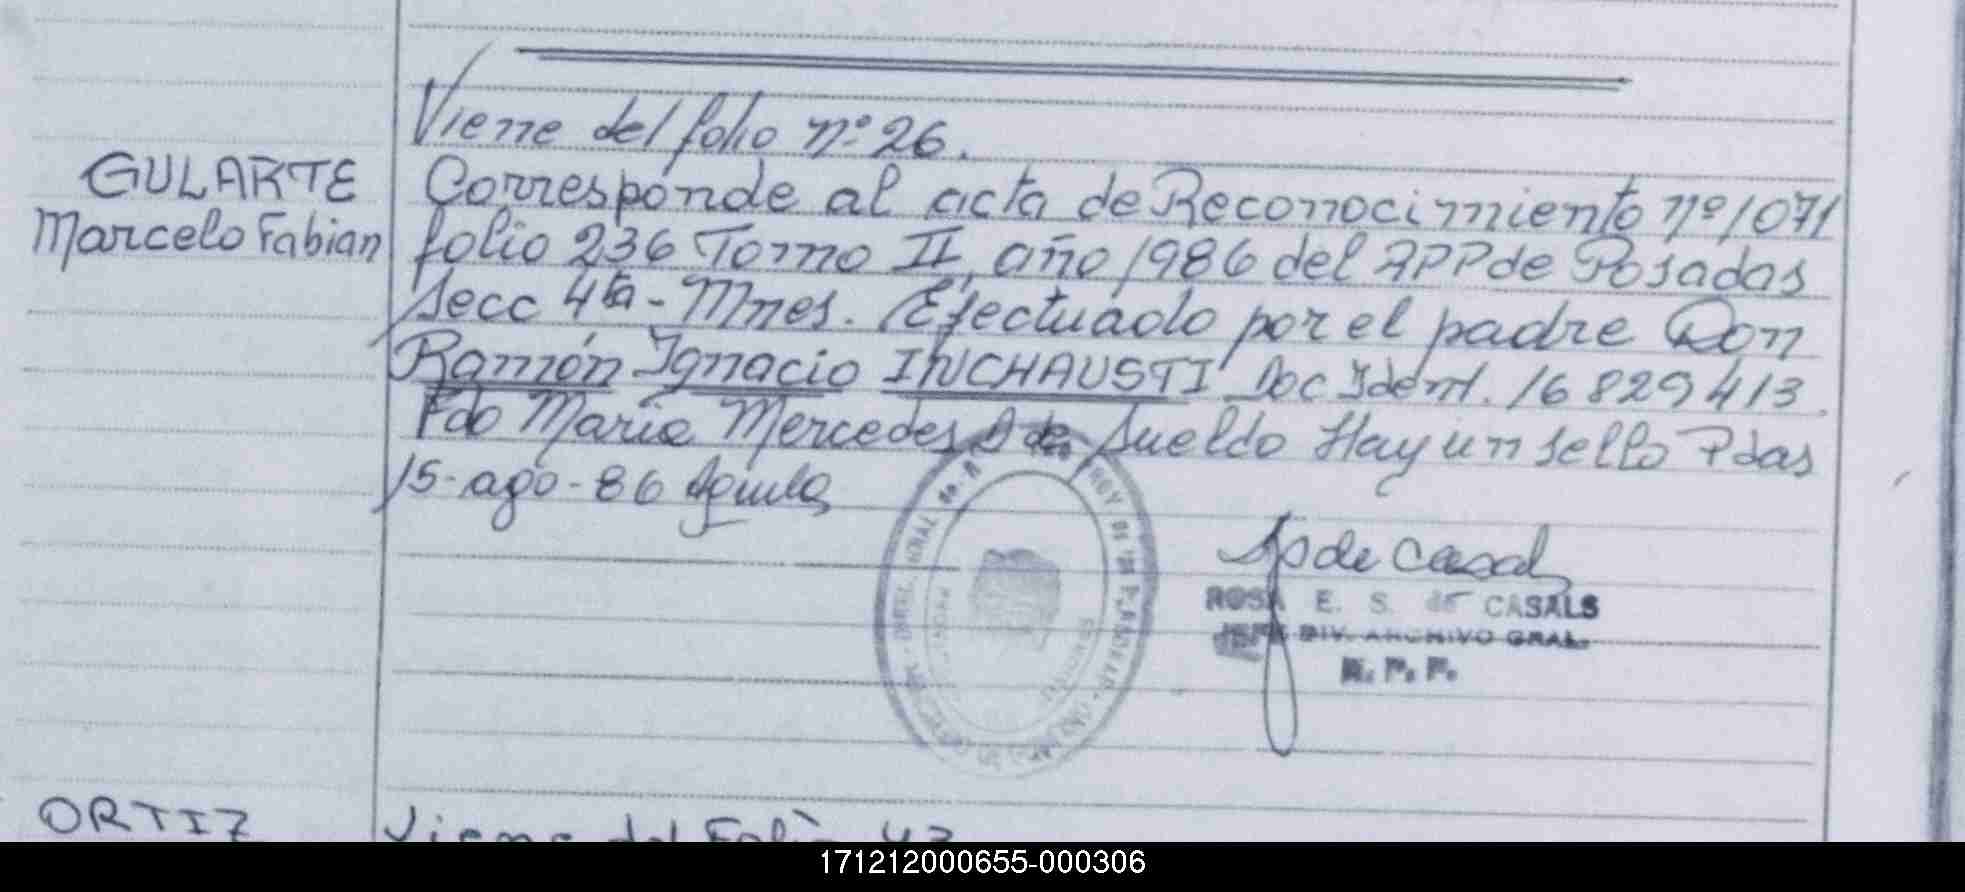 Viene del folio nº 26.
GULARTE
Marcelo Fabian
Corresponde al acta de Reconocimiento nº 1071
folio 236 Tomo II, año 1986 del RPP de Posadas
Secc 4ta - Mnes. Efectuado por el padre Don
Ramón Ignacio INCHAUSTI Doc Ident. 16829413.
Fdo Maria Mercedes D de Sueldo Hay un sello Pdas
15-ago-86
de Casals
ROSA E. S. de CASALS
JEFE DIV. ARCHIVO GRAL.
R. P. P.
ORTIZ
Viene del Folio 43
171212000655-000306